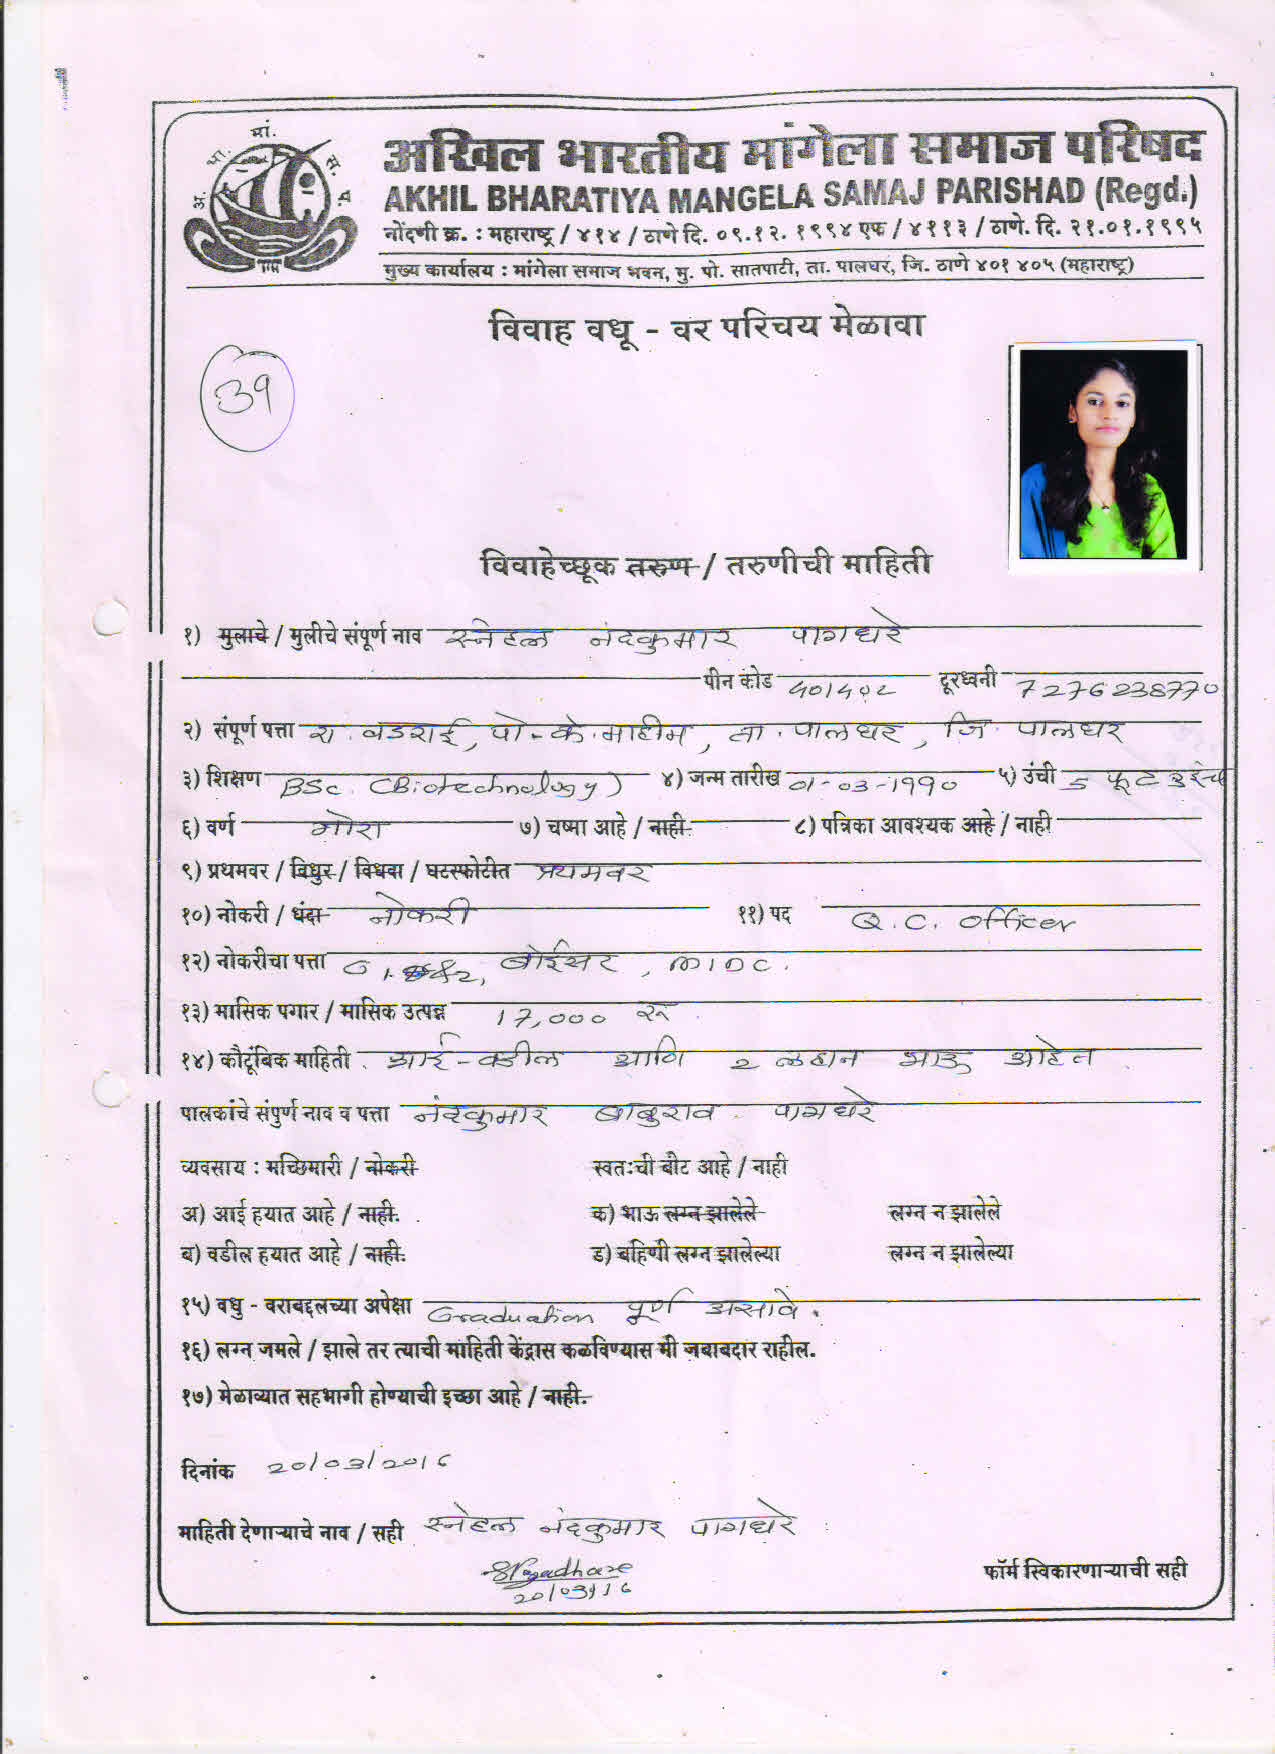 अ. भा. मां. स. प.
अखिल भारतीय मांगेला समाज परिषद
AKHIL BHARATIYA MANGELA SAMAJ PARISHAD (Regd.)
नोंदणी क्र. : महाराष्ट्र / ४१४ / ठाणे दि. ०९.१२. १९९४ एफ / ४११३ / ठाणे. दि. २१.०१.१९९५
मुख्य कार्यालय : मांगेला समाज भवन, मु. पो. सातपाटी, ता. पालघर, जि. ठाणे ४०१ ४०५ (महाराष्ट्र)
विवाह वधू - वर परिचय मेळावा
39
विवाहेच्छूक तरुण / तरुणीची माहिती
१) मुलाचे / मुलीचे संपूर्ण नाव स्नेहल नंदकुमार पागधरे
पीन कोड 401402 दूरध्वनी 7276238770
२) संपूर्ण पत्ता रा. वडराई, पो-के.माहीम, ता. पालघर, जि. पालघर
३) शिक्षण BSc. (Biotechnology) ४) जन्म तारीख 01-03-1990 ५) उंची 5 फूट 3 इंच
६) वर्ण गोरा ७) चष्मा आहे / नाही. ८) पत्रिका आवश्यक आहे / नाही
९) प्रथमवर / विधुर / विधवा / घटस्फोटीत प्रथमवर
१०) नोकरी / धंदा नोकरी ११) पद Q.C. officer
१२) नोकरीचा पत्ता बोईसर, MIDC.
१३) मासिक पगार / मासिक उत्पन्न 17,000 रू.
१४) कौटूंबिक माहिती. आई-वडील आणि 2 लहान भाऊ आहेत.
पालकांचे संपुर्ण नाव व पत्ता नंदकुमार बाबुराव पागधरे
व्यवसाय : मच्छिमारी / नोकरी स्वतःची बोट आहे / नाही
अ) आई हयात आहे / नाही. क) भाऊ लग्न झालेले लग्न न झालेले
ब) वडील हयात आहे / नाही. ड) बहिणी लग्न झालेल्या लग्न न झालेल्या
१५) वधु - वराबद्दलच्या अपेक्षा Graduation पूर्ण असावे.
१६) लग्न जमले / झाले तर त्याची माहिती केंद्रास कळविण्यास मी जबाबदार राहील.
१७) मेळाव्यात सहभागी होण्याची इच्छा आहे / नाही.
दिनांक 20/03/2016
माहिती देणाऱ्याचे नाव / सही स्नेहल नंदकुमार पागधरे
SPagadhare
20/03/16
फॉर्म स्विकारणाऱ्याची सही